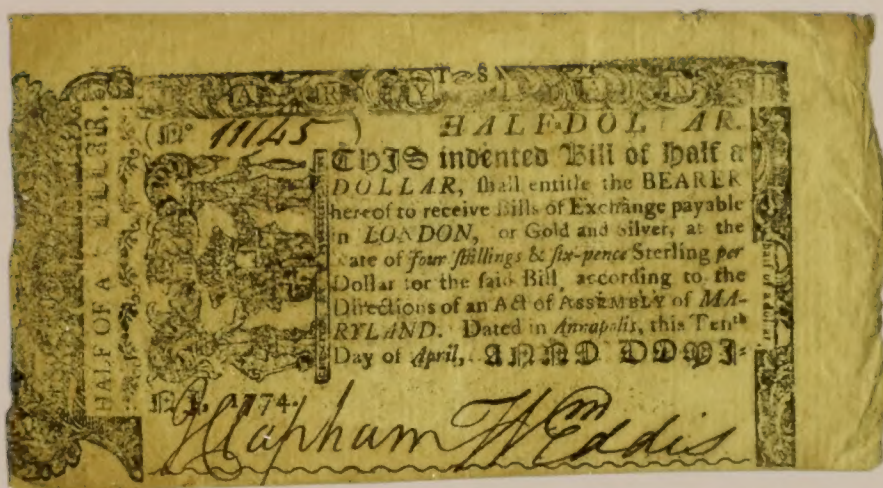 T S
MARYLAND
(No. 11145)
HALF-DOL AR.
THIS indented Bill of Half a
DOLLAR, ſhall entitle the BEARER
hereof to receive Bills of Exchange payable
in LONDON, or Gold and Silver, at the
Rate of four ſhillings & ſix-pence Sterling per
Dollar for the ſaid Bill, according to the
Directions of an Act of ASSEMBLY of MA-
RYLAND. Dated in Annapolis, this Tenth
Day of April, ANNO DOMI-
NI, 1774.
JClapham Wm Eddis
HALF OF A DOLLAR.
half of a dollar